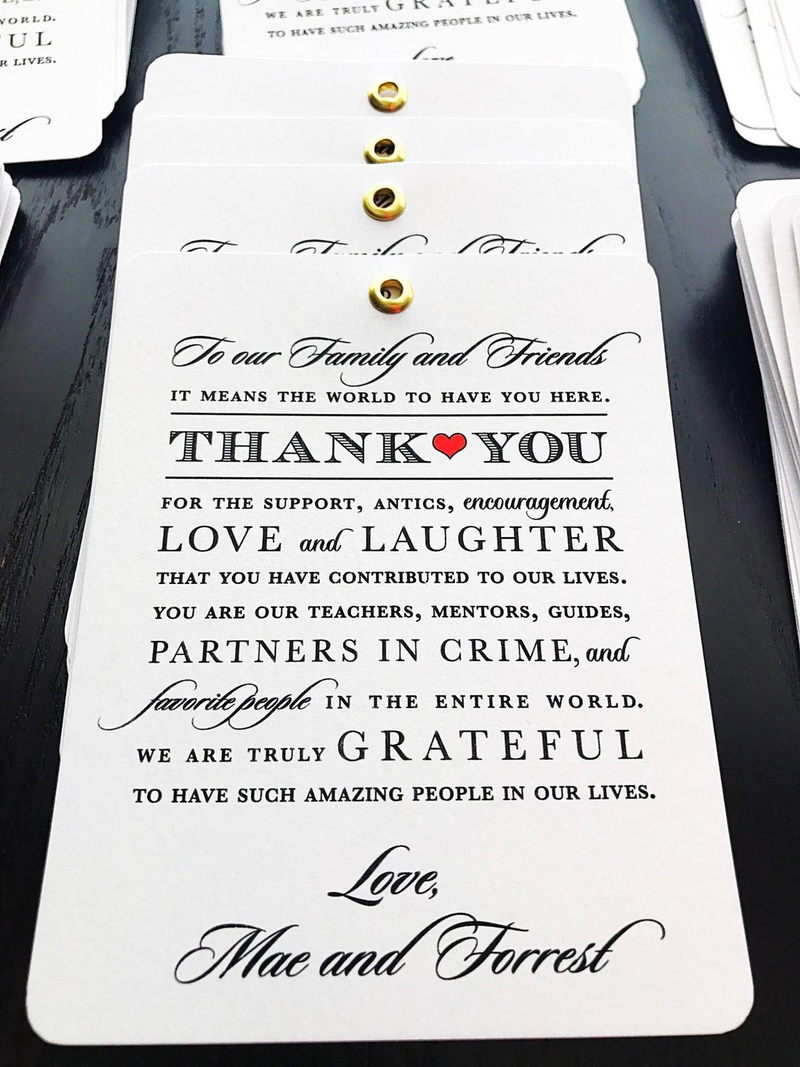 UL
R LIVES.
WE ARE TRULY GRATEFUL
TO HAVE SUCH AMAZING PEOPLE IN OUR LIVES.
Love,
To our Family and Friends
To our Family and Friends
IT MEANS THE WORLD TO HAVE YOU HERE.
THANK❤YOU
FOR THE SUPPORT, ANTICS, encouragement,
LOVE and LAUGHTER
THAT YOU HAVE CONTRIBUTED TO OUR LIVES.
YOU ARE OUR TEACHERS, MENTORS, GUIDES,
PARTNERS IN CRIME, and
favorite people IN THE ENTIRE WORLD.
WE ARE TRULY GRATEFUL
TO HAVE SUCH AMAZING PEOPLE IN OUR LIVES.
Love,
Mae and Forrest